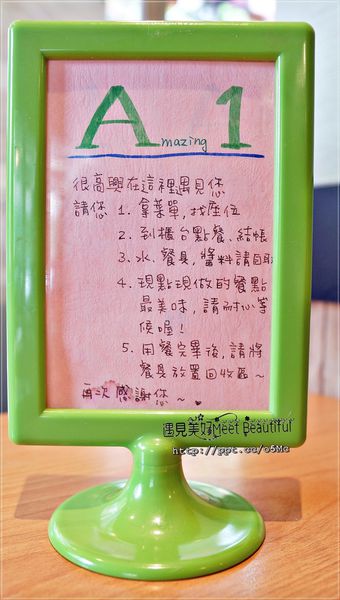 A mazing 1
很高興在這裡遇見您
請您 1. 拿菜單,找座位
2. 到櫃台點餐、結帳
3. 水、餐具,醬料請自取
4. 現點現做的餐點
最美味,請耐心等
候喔!
5. 用餐完畢後,請將
餐具放置回收區~
再次感謝您~♥
遇見美好Meet Beautiful
http://ppt.cc/o5Ma